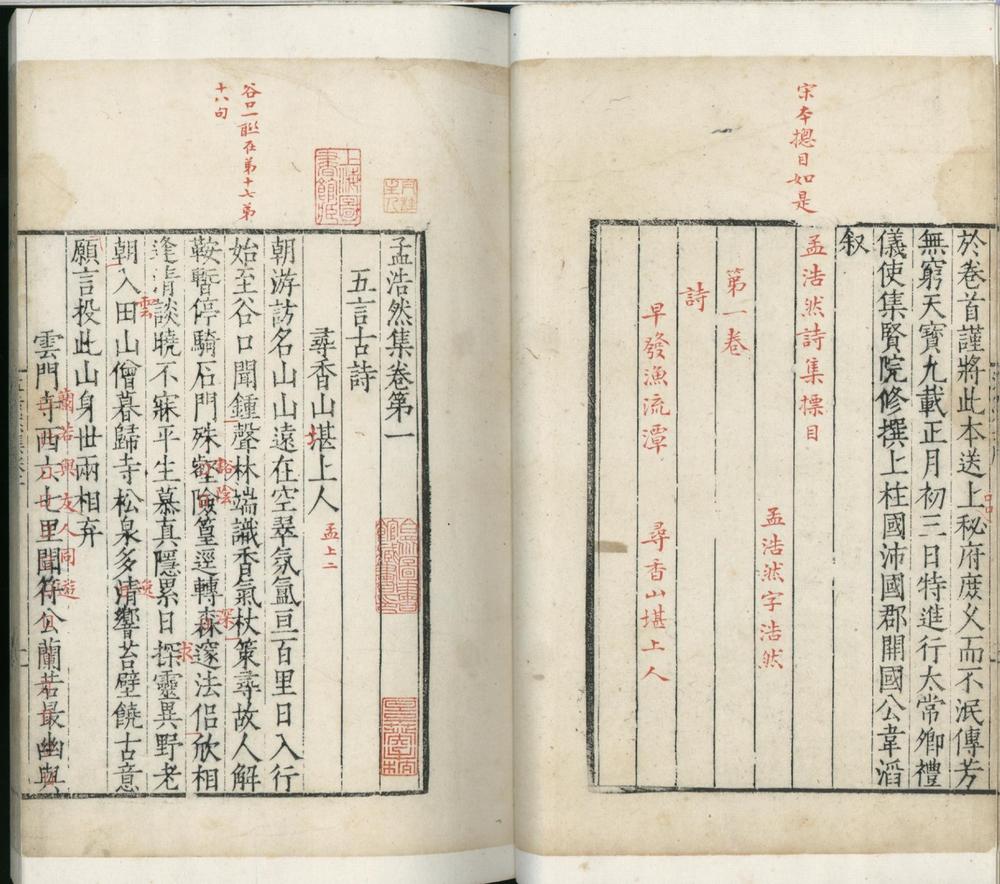 於卷首謹將此本送上秘府庶㡬而不泯傳芳
無窮天寶九載正月初三日特進行太常卿禮
儀使集賢院修撰上柱國沛國郡開國公韋滔
叙
宋本揔目如是
孟浩然詩集標目
孟浩然字浩然
第一卷
詩
早發漁流潭
尋香山堪上人
孟浩然集卷第一
五言古詩
尋香山堪上人
孟上二
朝游訪名山山遠在空翠氛氳亘百里日入行
始至谷口聞鍾聲林端識香氣杖策尋故人解
鞍暫停騎石門殊壑險篁逕轉森邃法侣欣相
逢清談曉不寐平生慕真隱累日探靈異野老
朝入田山僧暮歸寺松泉多清響苔壁饒古意
願言投此山身世兩相弃
雲門寺西六七里聞符公蘭若最幽與
谷口一聮在第十七第
十八句
豁陰
深
求
雲
逸
蘭若與友人同遊
上海圖
書館藏